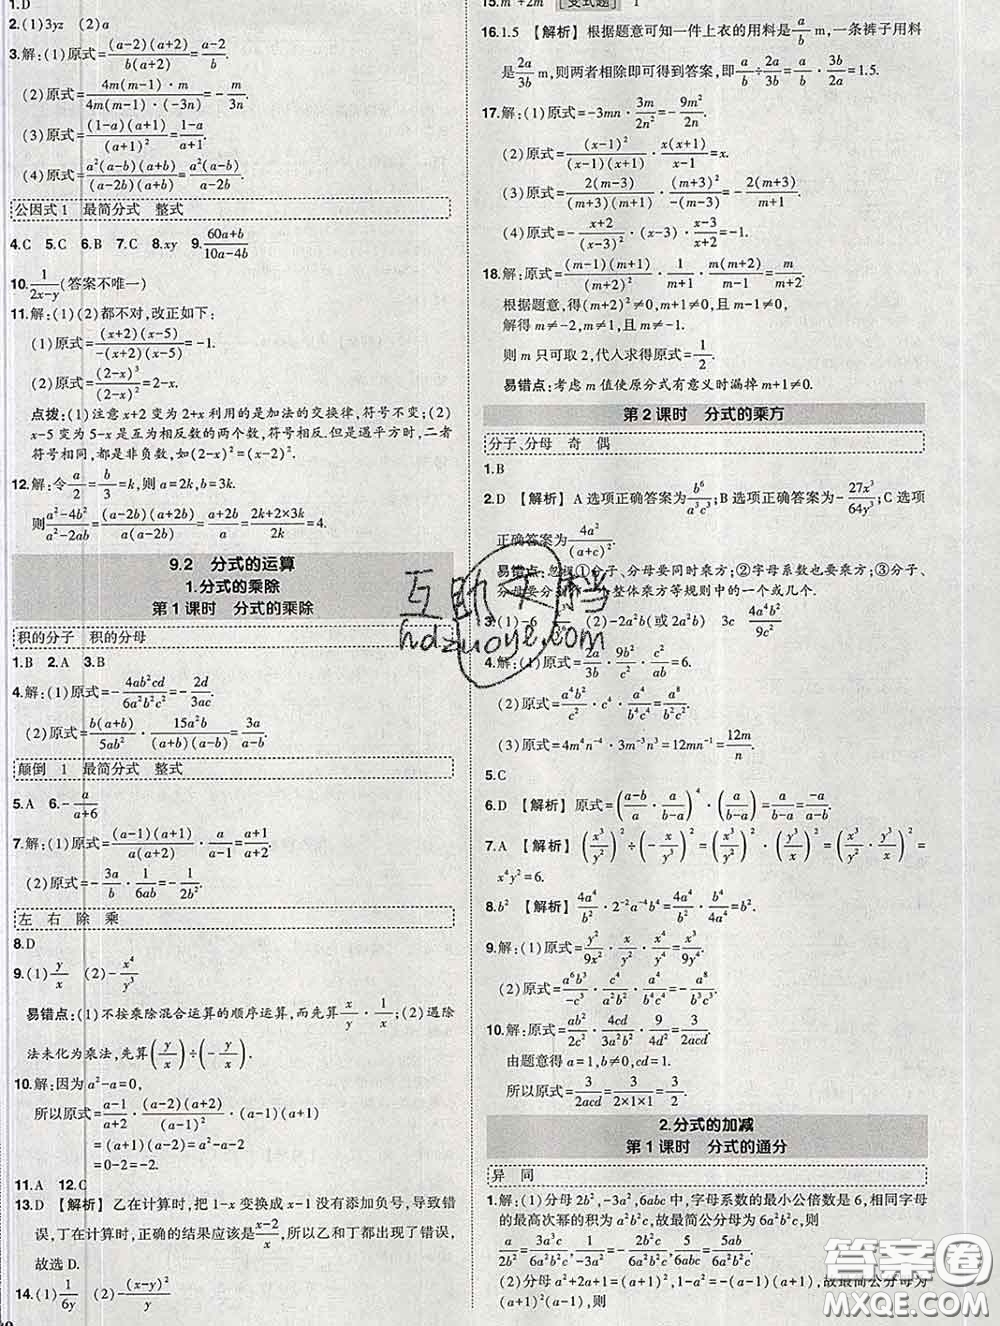 1.D
2.(1)3yz  (2)a
3.解:(1)原式=\frac{(a-2)(a+2)}{b(a+2)}=\frac{a-2}{b}.
(2)原式=\frac{4m(m-1)·m}{4m(m-1)·(-3n)}=-\frac{m}{3n}.
(3)原式=\frac{(1-a)(a+1)}{(a+1)^2}=\frac{1-a}{a+1}.
(4)原式=\frac{a^2(a-b)(a+b)}{(a-2b)(a+b)}=\frac{a^2(a-b)}{a-2b}.
公因式1  最简分式  整式
4.C  5.C  6.B  7.C  8.xy  9.\frac{60a+b}{10a-4b}
10.\frac{1}{2x-y}(答案不唯一)
11.解:(1)(2)都不对,改正如下:
(1)原式=\frac{(x+2)(x-5)}{-(x+2)(x-5)}=-1.
(2)原式=\frac{(2-x)^3}{(2-x)^2}=2-x.
点拨:(1)注意x+2变为2+x利用的是加法的交换律,符号不变;(2)
x-5变为5-x是互为相反数的两个数,符号相反.但是遇平方时,二者
符号相同,都是非负数,如(2-x)^2=(x-2)^2.
12.解:令\frac{a}{2}=\frac{b}{3}=k,则a=2k,b=3k.
则\frac{a^2-4b^2}{a^2-2ab}=\frac{(a-2b)(a+2b)}{a(a-2b)}=\frac{a+2b}{a}=\frac{2k+2×3k}{2k}=4.
9.2  分式的运算
1.分式的乘除
第1课时  分式的乘除
积的分子  积的分母
1.B  2.A  3.B
4.解:(1)原式=-\frac{4ab^2cd}{6a^2b^2c^2}=-\frac{2d}{3ac}.
(2)原式=\frac{b(a+b)}{5ab^2}·\frac{15a^2b}{(a+b)(a-b)}=\frac{3a}{a-b}.
颠倒  1  最简分式  整式
5.A  6.-\frac{a}{a+6}
7.解:(1)原式=\frac{(a-1)(a+1)}{a(a+2)}·\frac{a}{a-1}=\frac{a+1}{a+2}.
(2)原式=-\frac{3a}{b}·\frac{1}{6ab}=-\frac{1}{2b^2}.
左  右  除  乘
8.D
9.(1)\frac{y}{x}  (2)-\frac{x^4}{y^3}
易错点:(1)不按乘除混合运算的顺序运算,而先算\frac{x}{y}·\frac{1}{x};(2)遇除
法未化为乘法,先算(\frac{y}{x})÷(-\frac{y}{x}).
10.解:因为a^2-a=0,
所以原式=\frac{a-1}{a+2}·\frac{(a-2)(a+2)}{(a-1)^2}·(a-1)(a+1)
=(a+1)(a-2)=a^2-a-2
=0-2=-2.
11.A  12.C
13.D  【解析】乙在计算时,把1-x变换成x-1没有添加负号,导致错
误,丁在计算时,正确的结果应该是\frac{x-2}{x},所以乙和丁都出现了错误,
故选D.
14.(1)\frac{1}{6y}  (2)-\frac{(x-y)^2}{y}
15.m^2+2m  [变式题]  1
16.1.5  【解析】根据题意可知一件上衣的用料是\frac{a}{b}m,一条裤子用料
是\frac{2a}{3b}m,则两者相除即可得到答案,即\frac{a}{b}÷\frac{2a}{3b}=\frac{a}{b}·\frac{3b}{2a}=1.5.
17.解:(1)原式=-3mn·\frac{3m}{2n^2}=-\frac{9m^2}{2n}.
(2)原式=\frac{(x-1)^2}{(x-1)(x+1)}·\frac{x(x+1)}{x-1}=x.
(3)原式=\frac{2(m-3)}{(m+3)(m-3)}·\frac{(m+3)^2}{-(m-3)}=-\frac{2(m+3)}{m-3}.
(4)原式=-\frac{x+2}{(x-3)^2}·(x-3)·\frac{x-3}{x+2}=-1.
18.解:原式=\frac{(m-1)(m+1)}{(m+2)^2}·\frac{1}{m+1}·\frac{m(m+2)}{m-1}=\frac{m}{m+2}.
根据题意,得(m+2)^2≠0,m+1≠0,且m-1≠0,
解得m≠-2,m≠1,且m≠-1.
则m只可取2,代入求得原式=\frac{1}{2}.
易错点:考虑m值使原分式有意义时漏掉m+1≠0.
第2课时  分式的乘方
分子、分母  奇  偶
1.B
2.D  【解析】A选项正确答案为\frac{b^6}{a^3c^3};B选项正确答案为-\frac{27x^3}{64y^3};C选项
正确答案为\frac{4a^2}{(a+c)^2}.
易错点:忽视①分子、分母要同时乘方;②字母系数也要乘方;③分子、
分母要分别整体乘方等规则中的一个或几个.
3.(1)-6  (2)-2a^2b(或2a^2b)  3c  \frac{4a^4b^2}{9c^2}
4.解:(1)原式=\frac{2a}{3b}·\frac{9b^2}{c^2}·\frac{c^2}{ab}=6.
(2)原式=\frac{a^4b^2}{c^2}·c^4·\frac{a^4}{b^4c^4}=\frac{a^8}{b^2c^2}.
(3)原式=4m^4n^{-4}·3m^{-3}n^3=12mn^{-1}=\frac{12m}{n}.
5.C
6.D  【解析】原式=(\frac{a-b}{a}·\frac{a}{a-b})^4·(\frac{a}{b-a})=\frac{a}{b-a}=\frac{-a}{a-b}.
7.A  【解析】(\frac{x^3}{y^2})^2÷(-\frac{x}{y^3})^2=(\frac{x^3}{y^2})^2·(\frac{y^3}{x})^2=(\frac{x^3}{y^2}·\frac{y^3}{x})^2=
x^4y^2=6.
8.b^2  【解析】\frac{4a^4}{b^2}·2^{-2}a^{-4}b^4=\frac{4a^4}{b^2}·\frac{b^4}{4a^4}=b^2.
9.解:(1)原式=\frac{y^2}{9x^2}·\frac{x}{y}·\frac{x^4}{y^5}=\frac{x^3}{9y^4}.
(2)原式=\frac{a^6b^3}{-c^3}·\frac{c^2}{a^2b^2}·\frac{a^4}{b^4}=-\frac{a^8}{b^3c}.
10.解:原式=\frac{ab^2}{2c^2}·\frac{4cd}{3a^2b^2}·\frac{9}{4d^2}=\frac{3}{2acd}.
由题意得a=1,b≠0,cd=1.
所以原式=\frac{3}{2acd}=\frac{3}{2×1×1}=\frac{3}{2}.
2.分式的加减
第1课时  分式的通分
异  同
1.解:(1)分母2b^2,-3a^2,6abc中,字母系数的最小公倍数是6,相同字母
的最高次幂的积为a^2b^2c,故最简公分母为6a^2b^2c,则
\frac{a}{2b^2}=\frac{3a^3c}{6a^2b^2c},-\frac{2b^2c^2}{6a^2b^2c},\frac{5}{6abc}=\frac{5ab}{6a^2b^2c}.
(2)分母a^2+2a+1=(a+1)^2,1-a^2=-(a-1)(a+1),故最简公分母为
(a+1)^2(a-1),则
互助文档
hdzuoye.com
答案圈
MXQE.COM